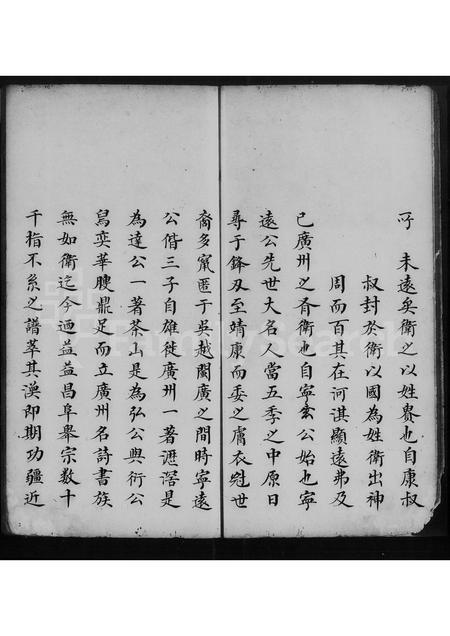 于 未遠矣衛之以姓貴也自康叔
叔封於衛以國為姓衛出神
周而百其在河淇顯遠弗及
已廣州之有衛也自寧玄公始也寧
遠公先世大名人當五季之中原日
尋于鋒刃至靖康而委之膚衣冠世
裔多竄匿于吳越閩廣之間時寧遠
公偕三子自雄徙廣州一著瀝滘是
為達公一著茶山是為弘公與衍公
舄奕華腴鼎足而立廣州名詩書族
無如衛迄今迺益益昌阜舉宗數十
千指不系之譜萃其渙即期功疆近
FamilySearch